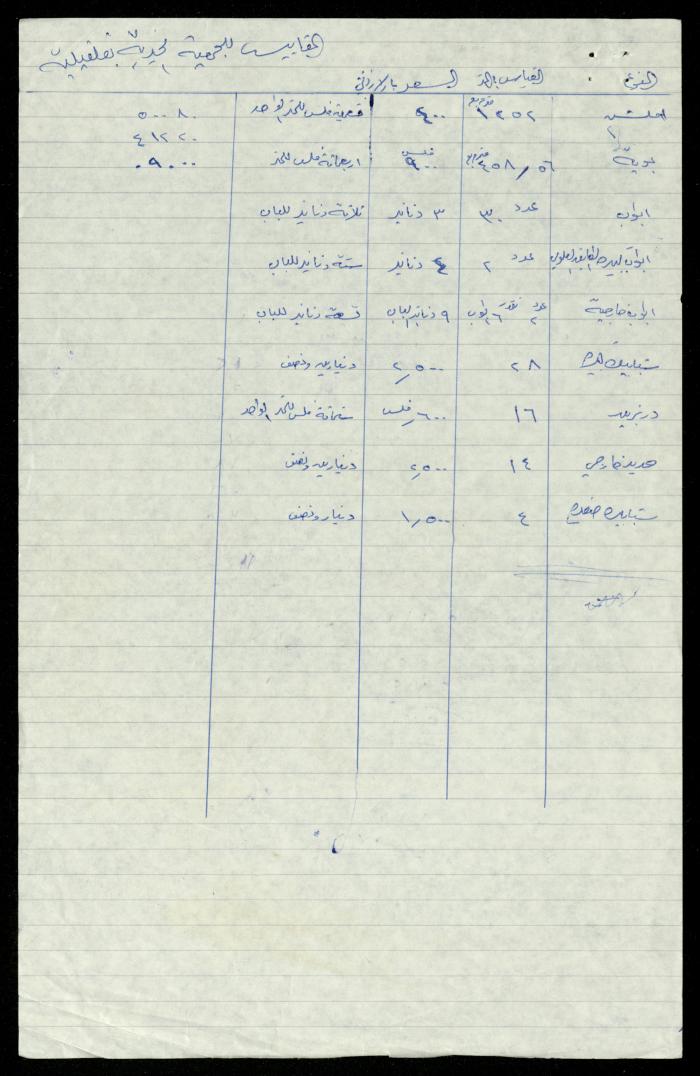 المقاييس للجمعية الخيرية بقلقيلية
النوع القياس بالمتر السعر بالأردني
١٢٥٢ متر مربع ٤٠٠ فلس للمتر الواحد ٥٠٠٨٠
٤١٢٢٠
بوية ٤٥٨/٥٦ متر مربع فلس اربعمائة فلس للمتر ٠٩٠٠٠
ابواب عدد ٣٠ ٣ دنانير ثلاثة دنانير للباب
ابواب الطابق العلوي عدد ٢ دنانير ستة دنانير للباب
ابواب خارجية عدد ٢ ٦ ابواب ٩ دنانير للباب تسعة دنانير للباب
شبابيك ٢٨ ٢٫٥٠٠ دينارين ونصف
درابزين ١٦ ٦٠٠ فلس ستمائة فلس للمتر الواحد
حديد خارجي ١٤ ٢٫٥٠٠ دينارين ونصف
شبابيك صغيرة ٤ ١٫٥٠٠ دينار ونصف